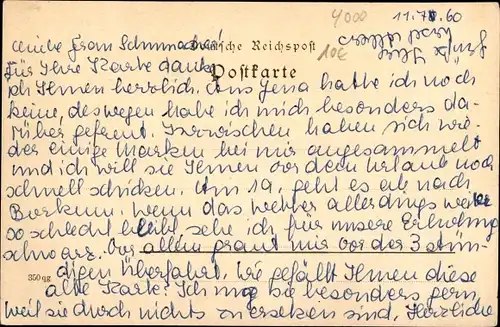 4000 11.7.60
Liebe Frau Schumacher! Deutsche Reichspost 10€
Für Ihre Karte danke Postkarte
ich Ihnen herzlich. Aus Jena hatte ich noch
keine, deswegen habe ich mich besonders da-
rüber gefreut. Inzwischen haben sich wie-
der einige Marken bei mir angesammelt
und ich will sie Ihnen vor dem Urlaub noch
schnell schicken. Am 19. geht es ab nach
Borkum. Wenn das Wetter allerdings weiter
so schlecht bleibt, sehe ich für unsere Erholung
schwarz. Vor allem graut mir vor der 3 stün-
digen Überfahrt. Wie gefällt Ihnen diese
350 qg alte Karte? Ich mag sie besonders gern,
weil sie durch nichts zu ersetzen sind. Herzliche
Grüße Ihre